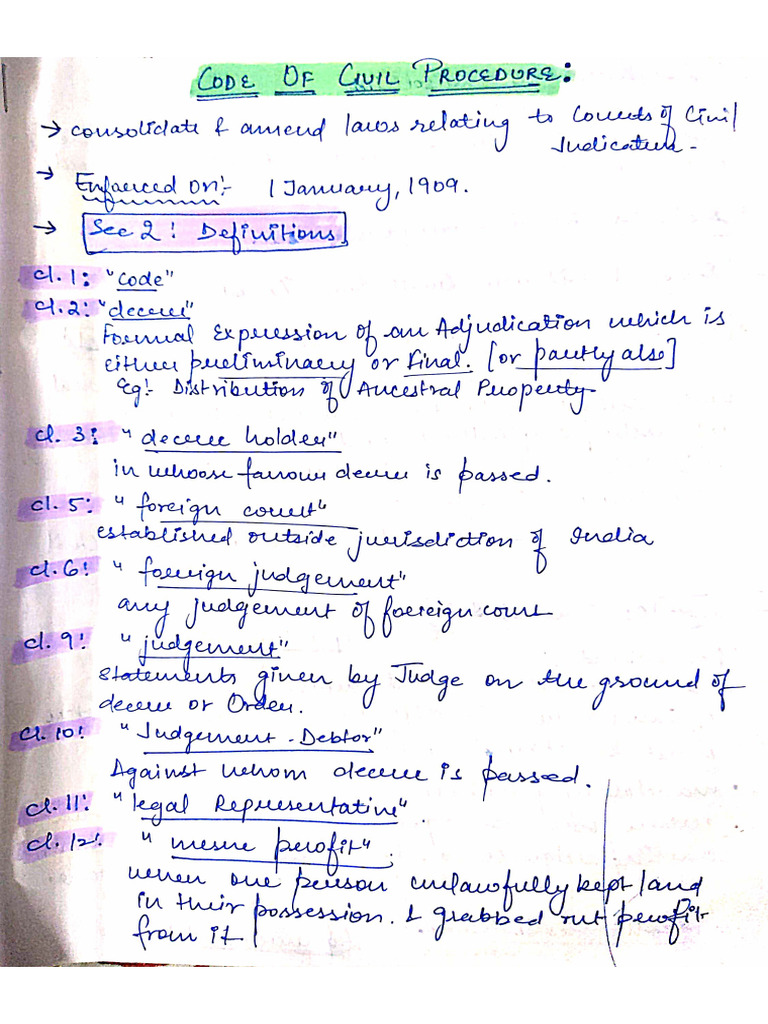 CODE OF CIVIL PROCEDURE:
→ consolidate & amend laws relating to Courts of Civil
Judicature -
→ Enforced on:- 1 January, 1909.
→ Sec 2! Definitions
cl.1: "code"
cl.2: "decree"
Formal Expression of an Adjudication which is
either preliminary or Final. [or partly also]
Eg:- Distribution of Ancestral Property
cl. 3: "decree holder"
in whose favour decree is passed.
cl. 5: "foreign court"
established outside jurisdiction of India
cl. 6! "foreign judgement"
any judgement of foreign court
cl. 9! "judgement"
Statements given by Judge on the ground of
decree or Order.
Cl. 10! "Judgement-Debtor"
Against whom decree is passed.
cl. 11: "legal Representative".
cl. 12! "mesne profit".
when one person unlawfully kept land
in their possession. & grabbed out profit
from it